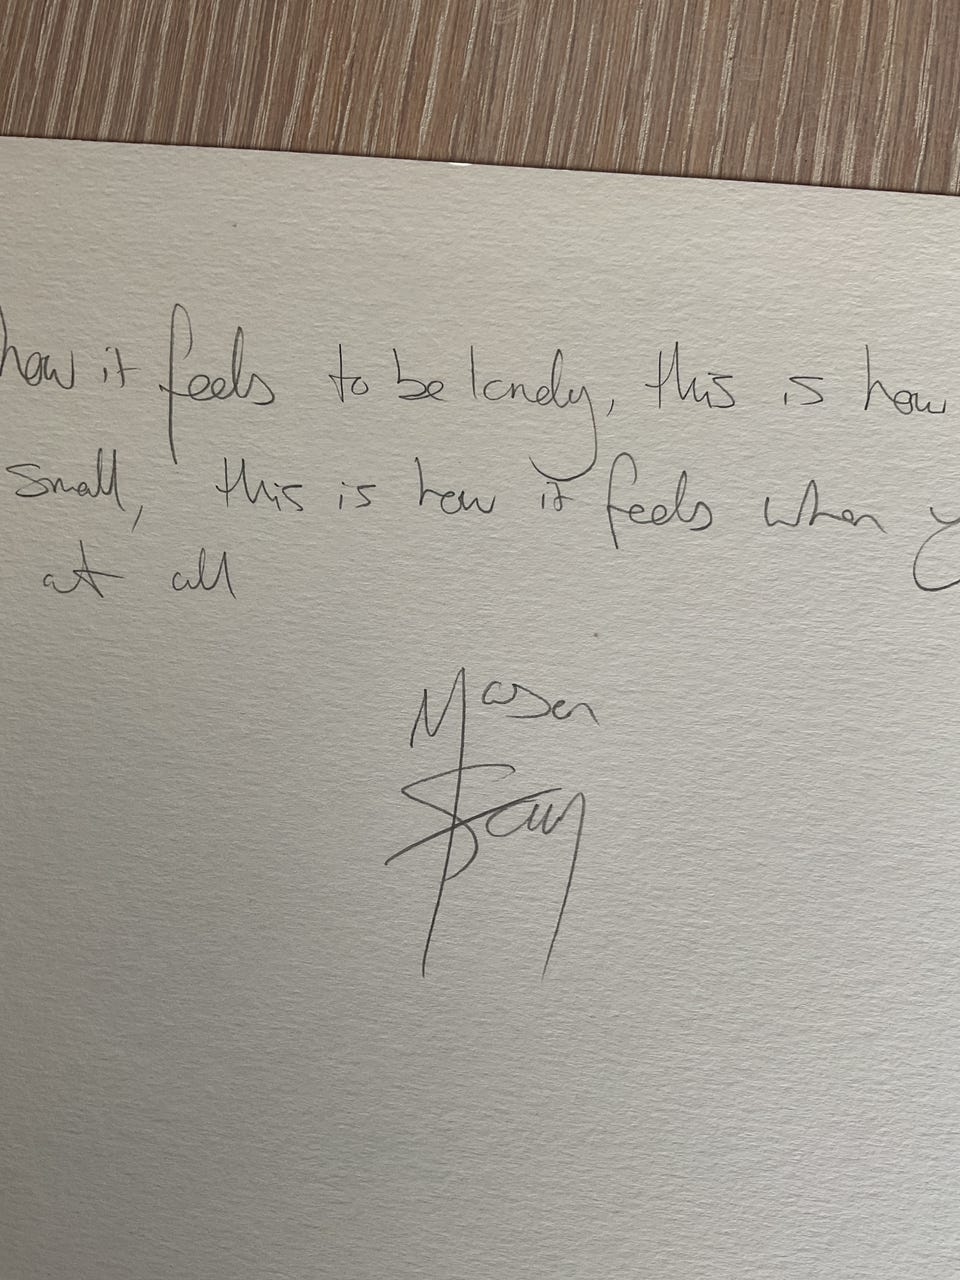 how it feels to be lonely, this is how
small, this is how it feels when y
at all